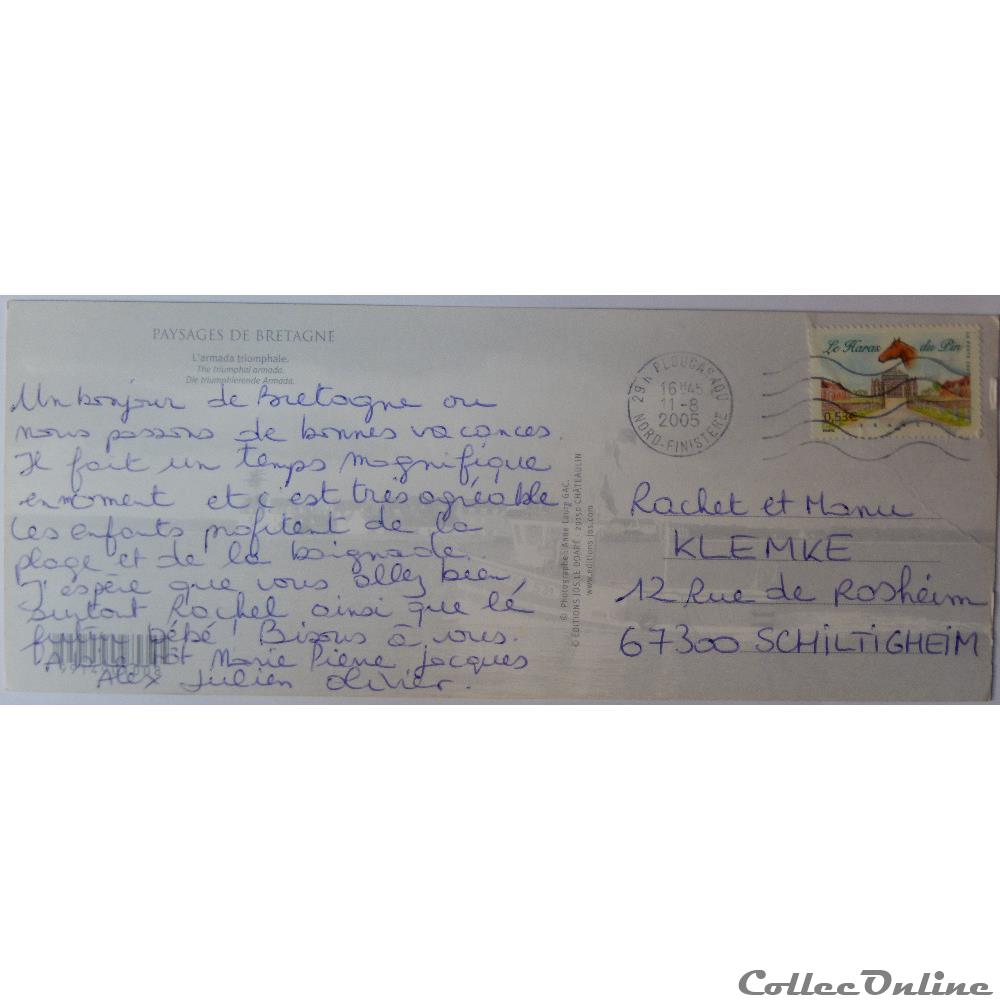 PAYSAGES DE BRETAGNE
L'armada triomphale.
The triumphal armada.
Die triumphierende Armada.
Un bonjour de Bretagne ou
nous passons de bonnes vacances.
Il fait un temps magnifique
en moment et c'est très agréable
Les enfants profitent de la
plage et de la baignade.
J'espère que vous allez bien,
surtout Rachel ainsi que le
futur bébé! Bisous à vous.
Marie Pierre Jacques
Alex Julien Olivier.
© Photographes Anne-Laure GAC.
© EDITIONS JOS LE DOARÉ - 29150 CHÂTEAULIN
www.editions-jos.com
29.N PLOUGASNOU
16H45
11-8
2005
NORD-FINISTERE
Le Haras du Pin
0,53€
LA POSTE
Rachel et Manu
KLEMKE
12 Rue de Rosheim
67300 SCHILTIGHEIM
CollecOnline